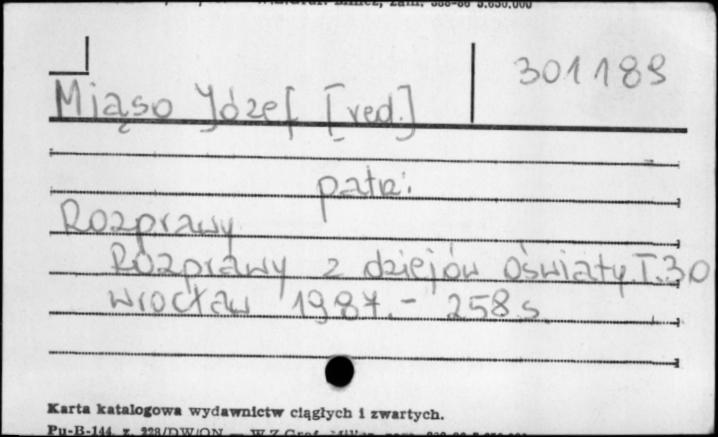 301189
Miąso Józef [red.]
patrz:
Rozprawy
Rozprawy z dziejów oświaty. T.30
Wrocław 1987.- 258 s.
Karta katalogowa wydawnictw ciągłych i zwartych.
Pu-B-144, z. 228/DW/ON —